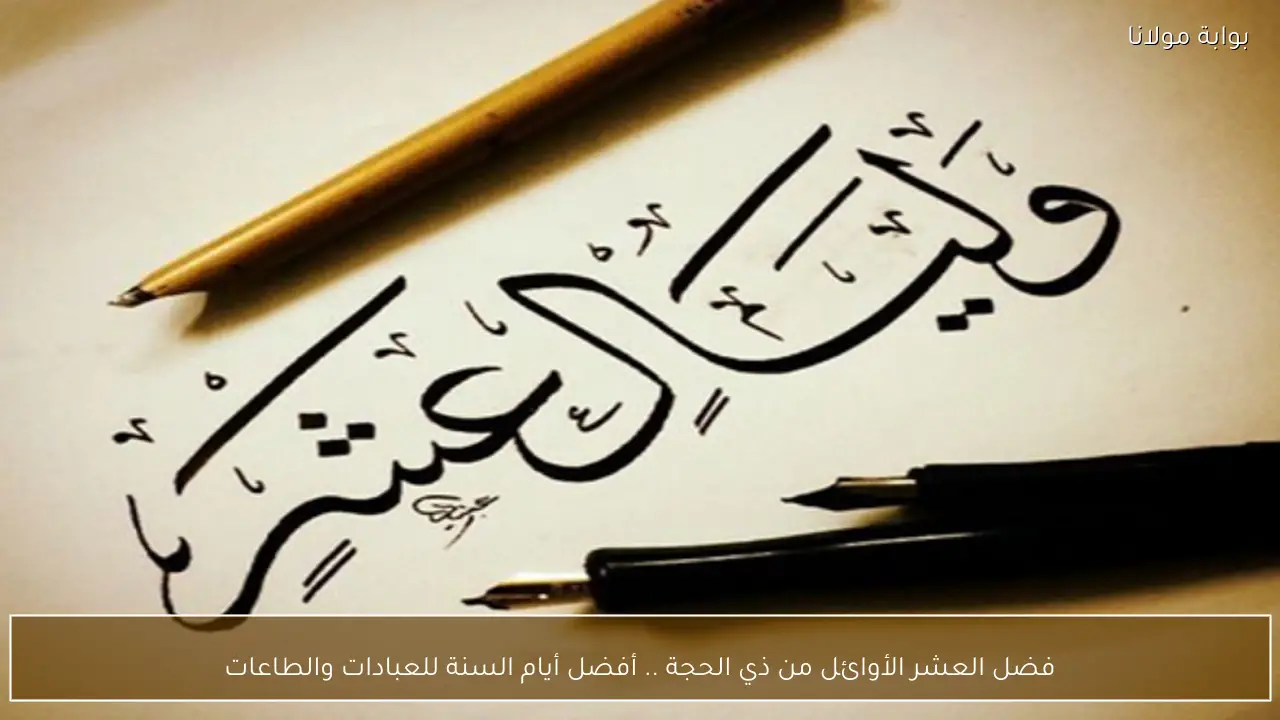 بوابة مولانا
وَلَيَالٍ عَشْرٍ
فضل العشر الأوائل من ذي الحجة .. أفضل أيام السنة للعبادات والطاعات